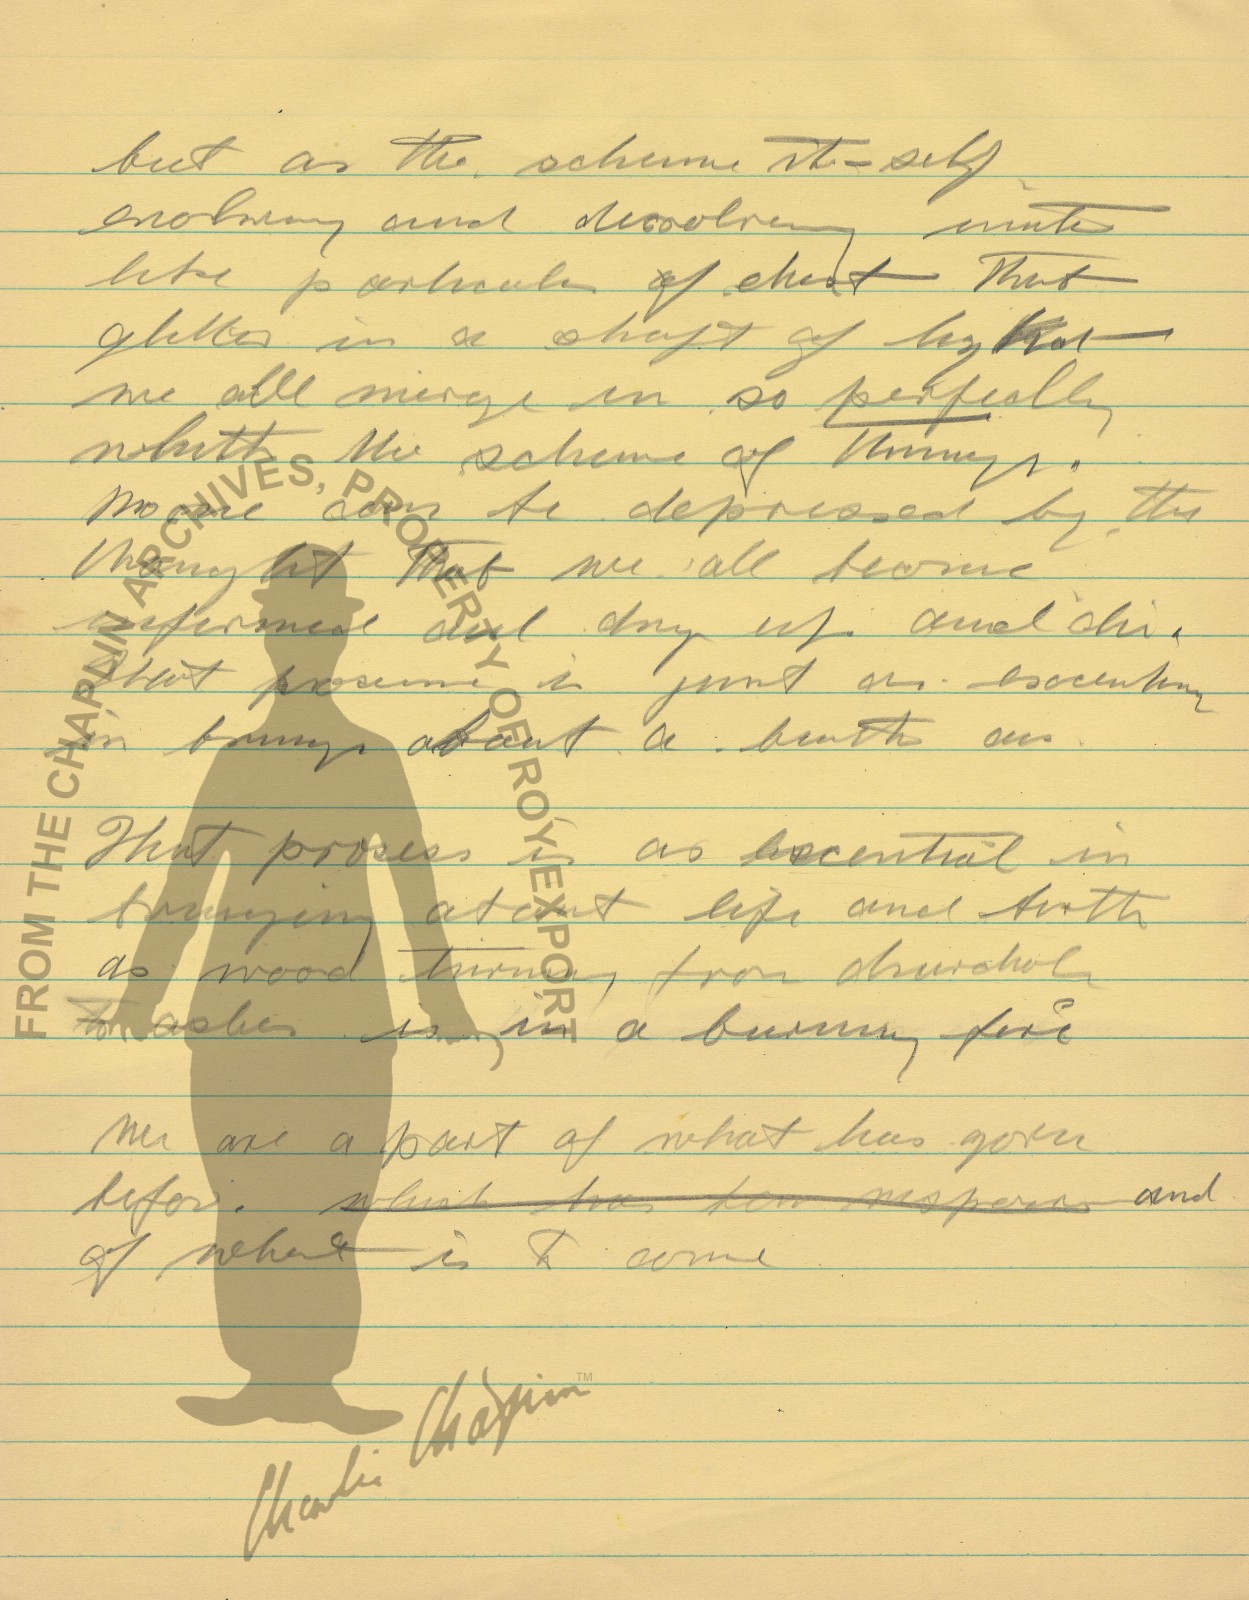 but as the scheme its-self
evolving and dissolving into
like particules of dust that
glitter in a shaft of light
we all merge in so perfectly
with the scheme of things.
No one can be depressed by the
thought that we all become
and dry up and die.
that process is just as
in bring about a birth as
That process is as escential in
bringing about life and birth
as wood turning from
to ashes is in a burning fire
We are a part of what has gone
before. which has been and
of what is to come
FROM THE CHAPLIN ARCHIVES, PROPERTY OF ROY EXPORT
Charlie Chaplin™